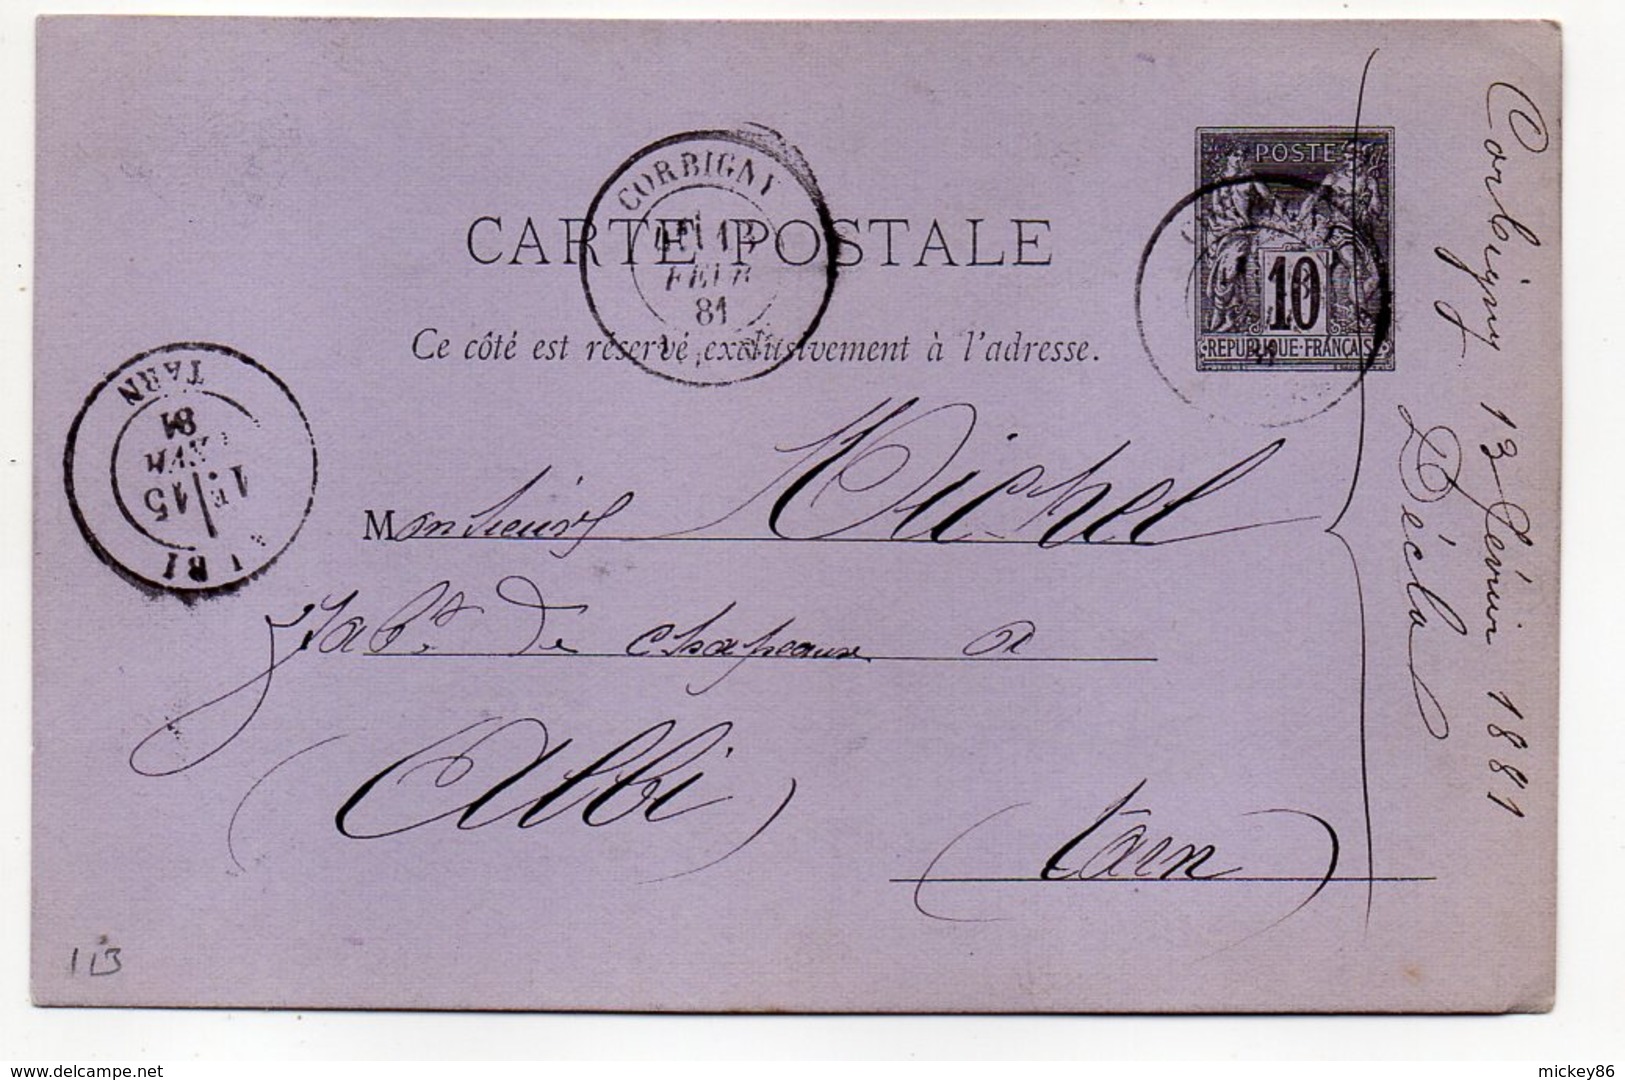 CORBIGNY
13
FEVR
81
POSTE
10
REPUBLIQUE-FRANÇAISE
CARTE POSTALE
Ce côté est réservé exclusivement à l'adresse.
TARN
81
AVR
1E / 15
Monsieur Michel
Fabt. de chapeaux a
Albi
(tarn)
Corbigny 13 février 1881
Déclal
1 B
www.delcampe.net
mickey86